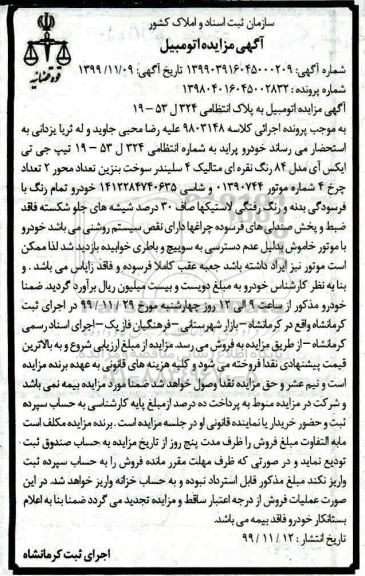 سازمان ثبت اسناد و املاک کشور
آگهی مزایده اتومبیل
قوه قضائیه
شماره آگهی: ۱۳۹۹۰۳۹۱۶۰۴۵۰۰۰۲۰۹ تاریخ آگهی: ۱۳۹۹/۱۱/۰۹
شماره پرونده : ۱۳۹۸۰۴۰۱۶۰۴۵۰۰۲۸۳۲
آگهی مزایده اتومبیل به پلاک انتظامی ۳۲۴ ل ۵۳ – ۱۹
به موجب پرونده اجرائی کلاسه ۹۸۰۳۱۴۸ علیه رضا محبی جاوید و له ثریا یزدانی به
استحضار می رساند خودرو پراید به شماره انتظامی ۳۲۴ ل ۵۳ – ۱۹ تیپ جی تی
ایکس آی مدل ۸۴ رنگ نقره ای متالیک ۴ سلیندر سوخت بنزین تعداد محور ۲ تعداد
چرخ ۴ شماره موتور ۰۱۳۹۰۷۴۴ و شاسی ۱۴۱۲۲۸۴۷۴۰۶۳۵ خودرو تمام رنگ با
فرسودگی بدنه و رنگ رفتگی لاستیکها صاف ۳۰ درصد شیشه های جلو شکسته فاقد
ضبط و پخش صندلی های فرسوده چراغها دارای نقص سیستم روشنی می باشد خودرو
با موتور خاموش بدلیل عدم دسترسی به سوییچ و باطری خوابیده بازدید شد لذا ممکن
است موتور نیز ایراد داشته باشد جعبه عقب کاملا فرسوده و فاقد زاپاس می باشد . و
بنا به نظر کارشناس خودرو به مبلغ دویست و بیست میلیون ریال برآورد گردید. ضمنا
خودرو مذکور از ساعت ۹ الی ۱۲ روز چهارشنبه مورخ ۲۹ / ۱۱ / ۹۹ در اجرای ثبت
کرمانشاه واقع در کرمانشاه – بازار شهرستانی – فرهنگیان فاز یک – اجرای اسناد رسمی
کرمانشاه – از طریق مزایده به فروش می رسد. مزایده از مبلغ ارزیابی شروع و به بالاترین
قیمت پیشنهادی نقدا فروخته می شود و کلیه هزینه های قانونی به عهده برنده مزایده
است و نیم عشر و حق مزایده نقدا وصول خواهد شد ضمنا مورد مزایده بیمه نمی باشد
و شرکت در مزایده منوط به پرداخت ده درصد از مبلغ پایه کارشناسی به حساب سپرده
ثبت و حضور خریدار یا نماینده قانونی او در جلسه مزایده است . برنده مزایده مکلف است
مابه التفاوت مبلغ فروش را ظرف مدت پنج روز از تاریخ مزایده به حساب صندوق ثبت
تودیع نماید و در صورتی که ظرف مهلت مقرر مانده فروش را به حساب سپرده ثبت
واریز نکند مبلغ مذکور قابل استرداد نبوده و به حساب خزانه واریز خواهد شد. در این
صورت عملیات فروش از درجه اعتبار ساقط و مزایده تجدید می گردد ضمنا بنا به اعلام
بستانکار خودرو فاقد بیمه می باشد.
تاریخ انتشار : ۱۲ / ۱۱ / ۹۹
اجرای ثبت کرمانشاه